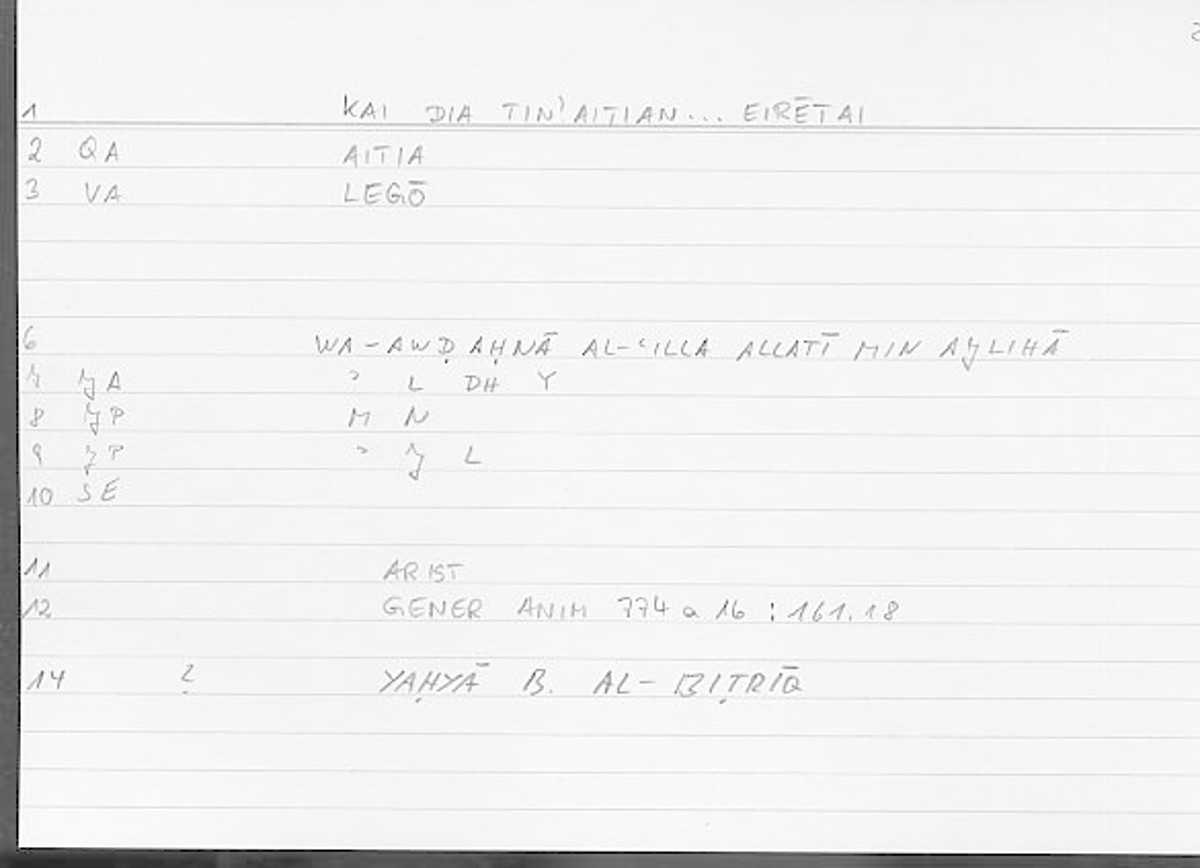 1 KAI DIA TIN' AITIAN... EIRĒTAI
2 QA AITIA
3 VA LEGŌ
6 WA-AWḌAḤNĀ AL-ʿILLA ALLATĪ MIN AJLIHĀ
7 JA ʾ L DH Y
8 JP M N
9 JP ʾ J L
10 SE
11 ARIST
12 GENER ANIM 774 a 16 : 161.18
14 ? YAḤYĀ B. AL-BIṬRĪQ